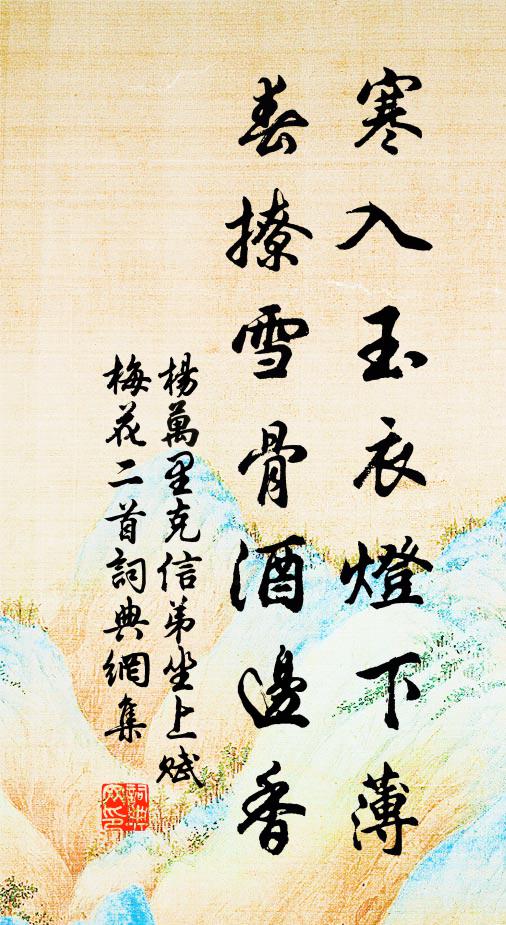 寒入玉衣燈下薄
春撩雪骨酒邊香
楊萬里克信弟坐上賦
梅花二首詞典網集